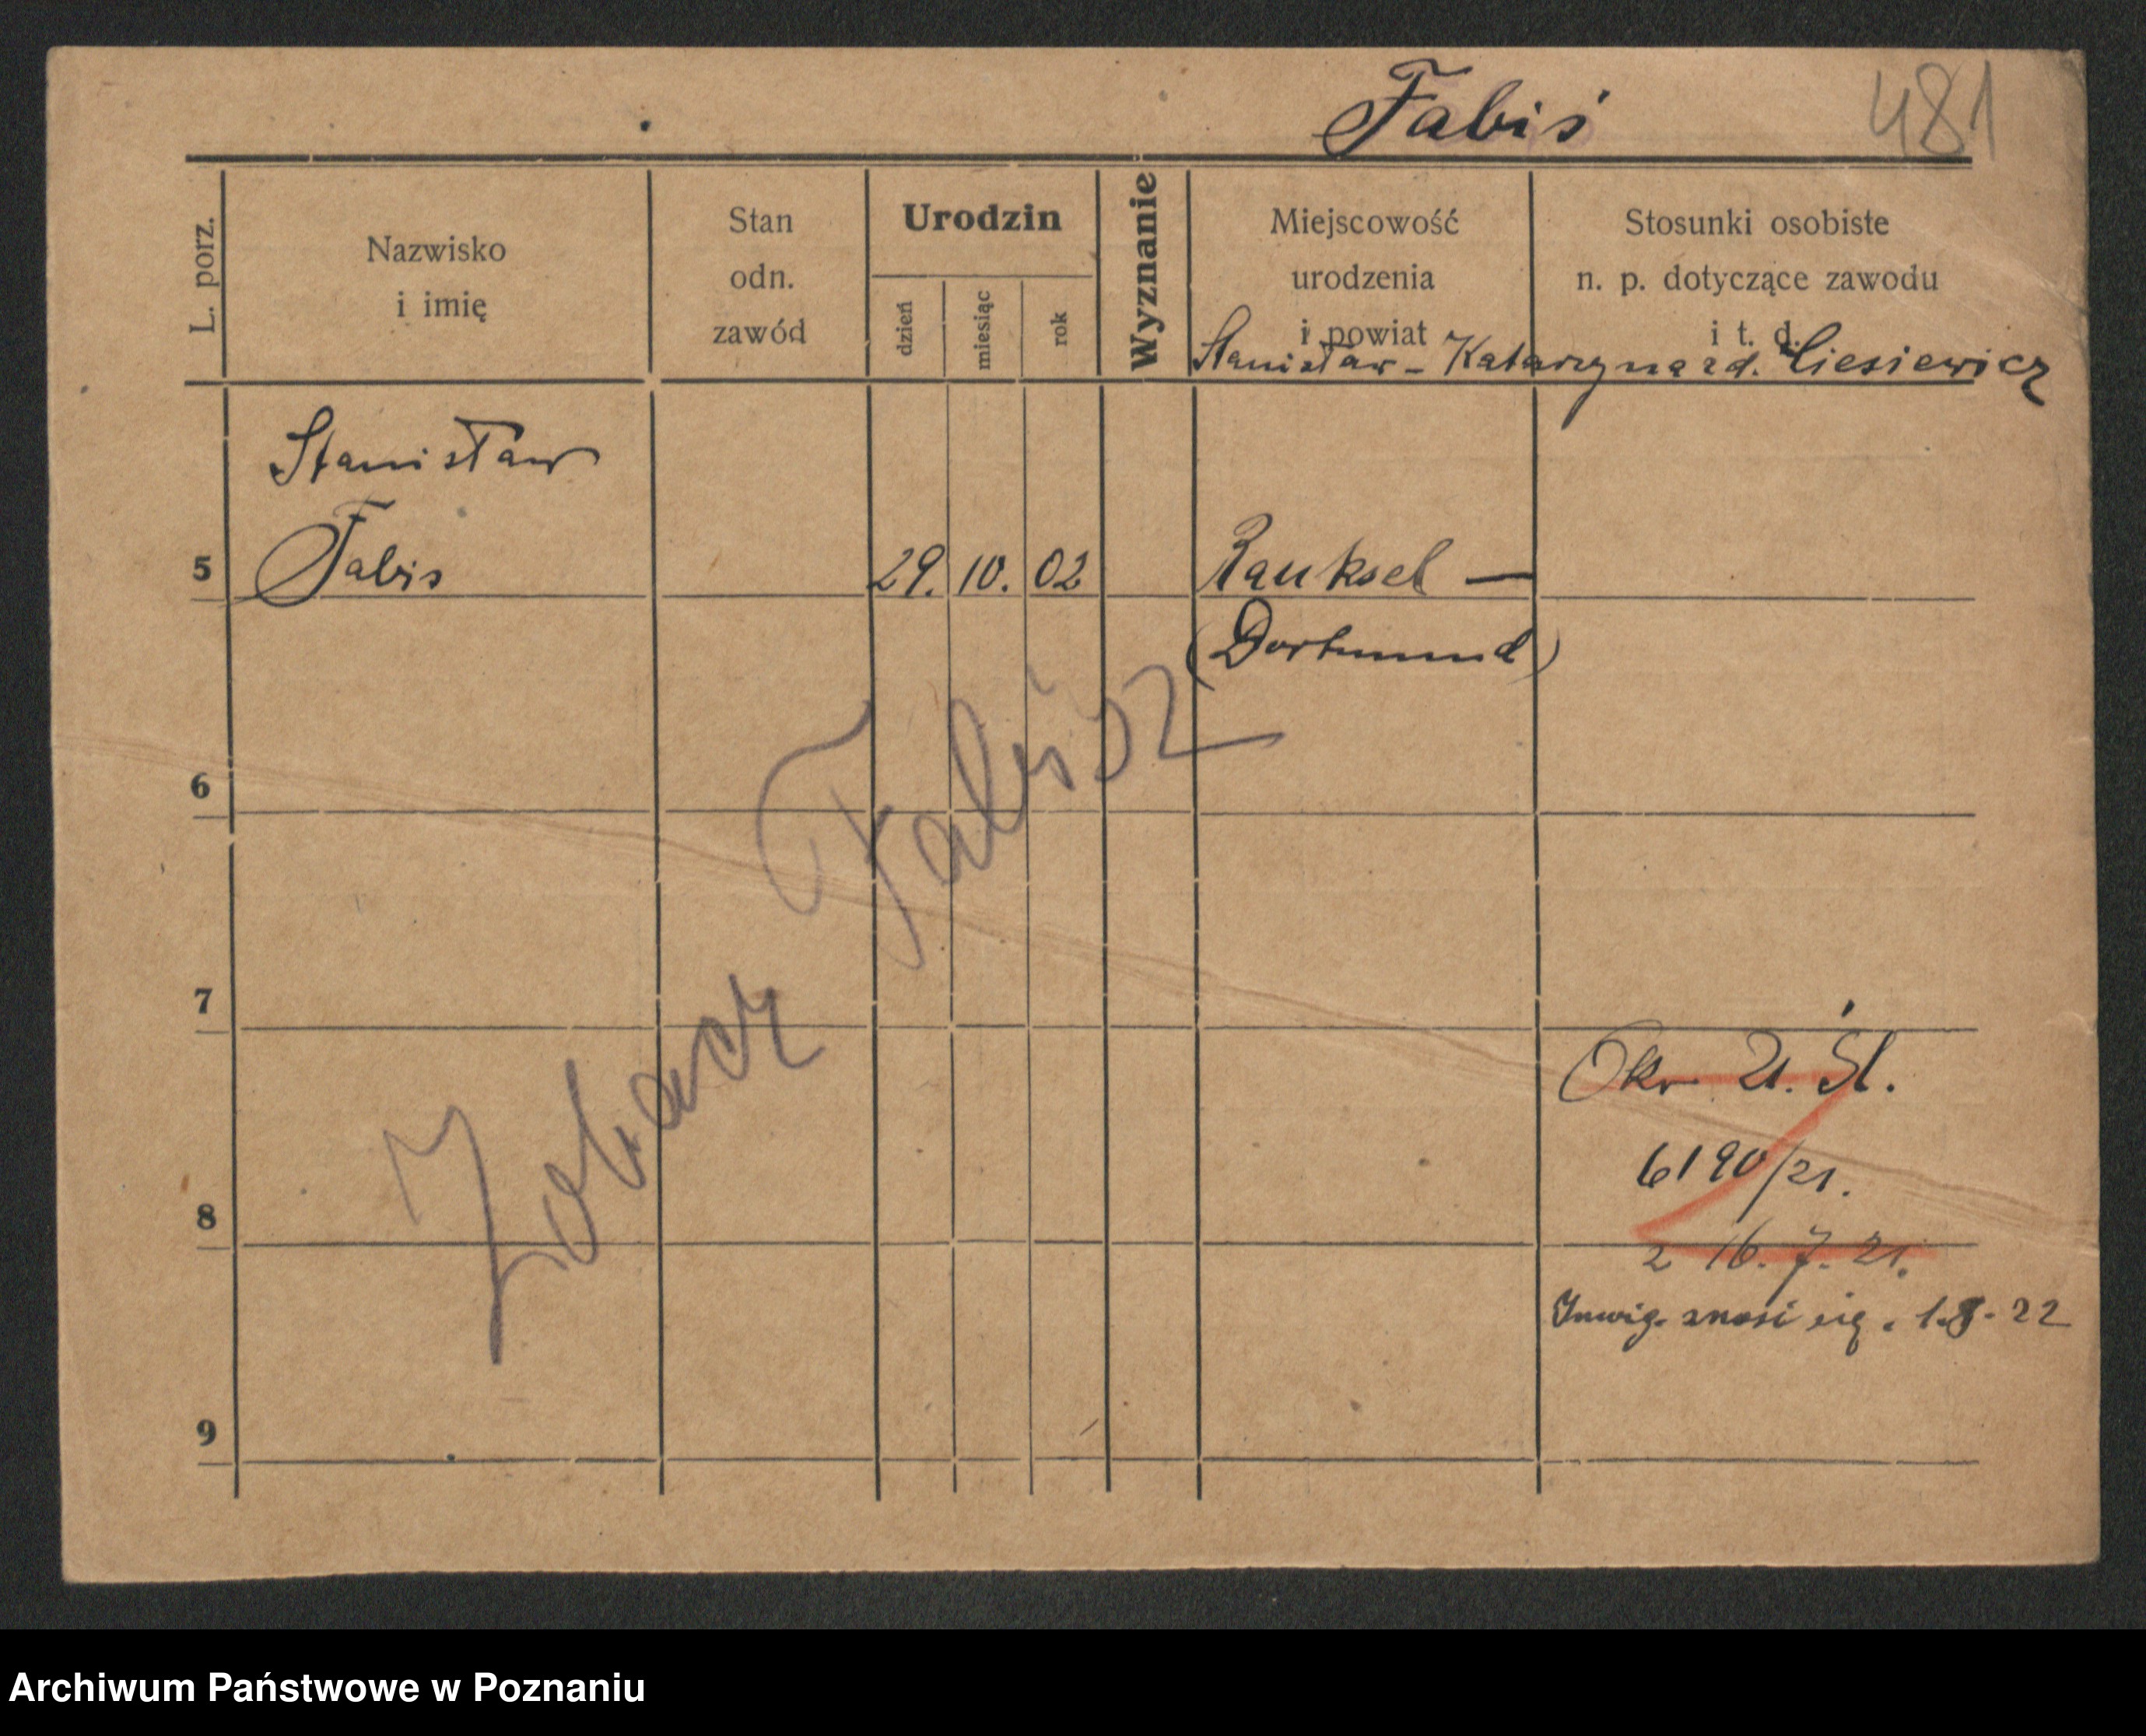 Fabiś 481
L. porz.
Nazwisko
i imię
Stan
odn.
zawód
Urodzin
dzień
miesiąc
rok
Wyznanie
Miejscowość
urodzenia
i powiat
Stosunki osobiste
n. p. dotyczące zawodu
i t. d.
Stanisław - Katarzyna z d. Ciesiewicz
Stanisław
5 Fabis 29. 10. 02 Rauksel —
(Dortmund)
6
Zobacz Fabisz
7
Okr 21. Śl.
6190/21.
8
z 16. 7. 21.
Inwig. znosi się. 1.8.22
9
Archiwum Państwowe w Poznaniu